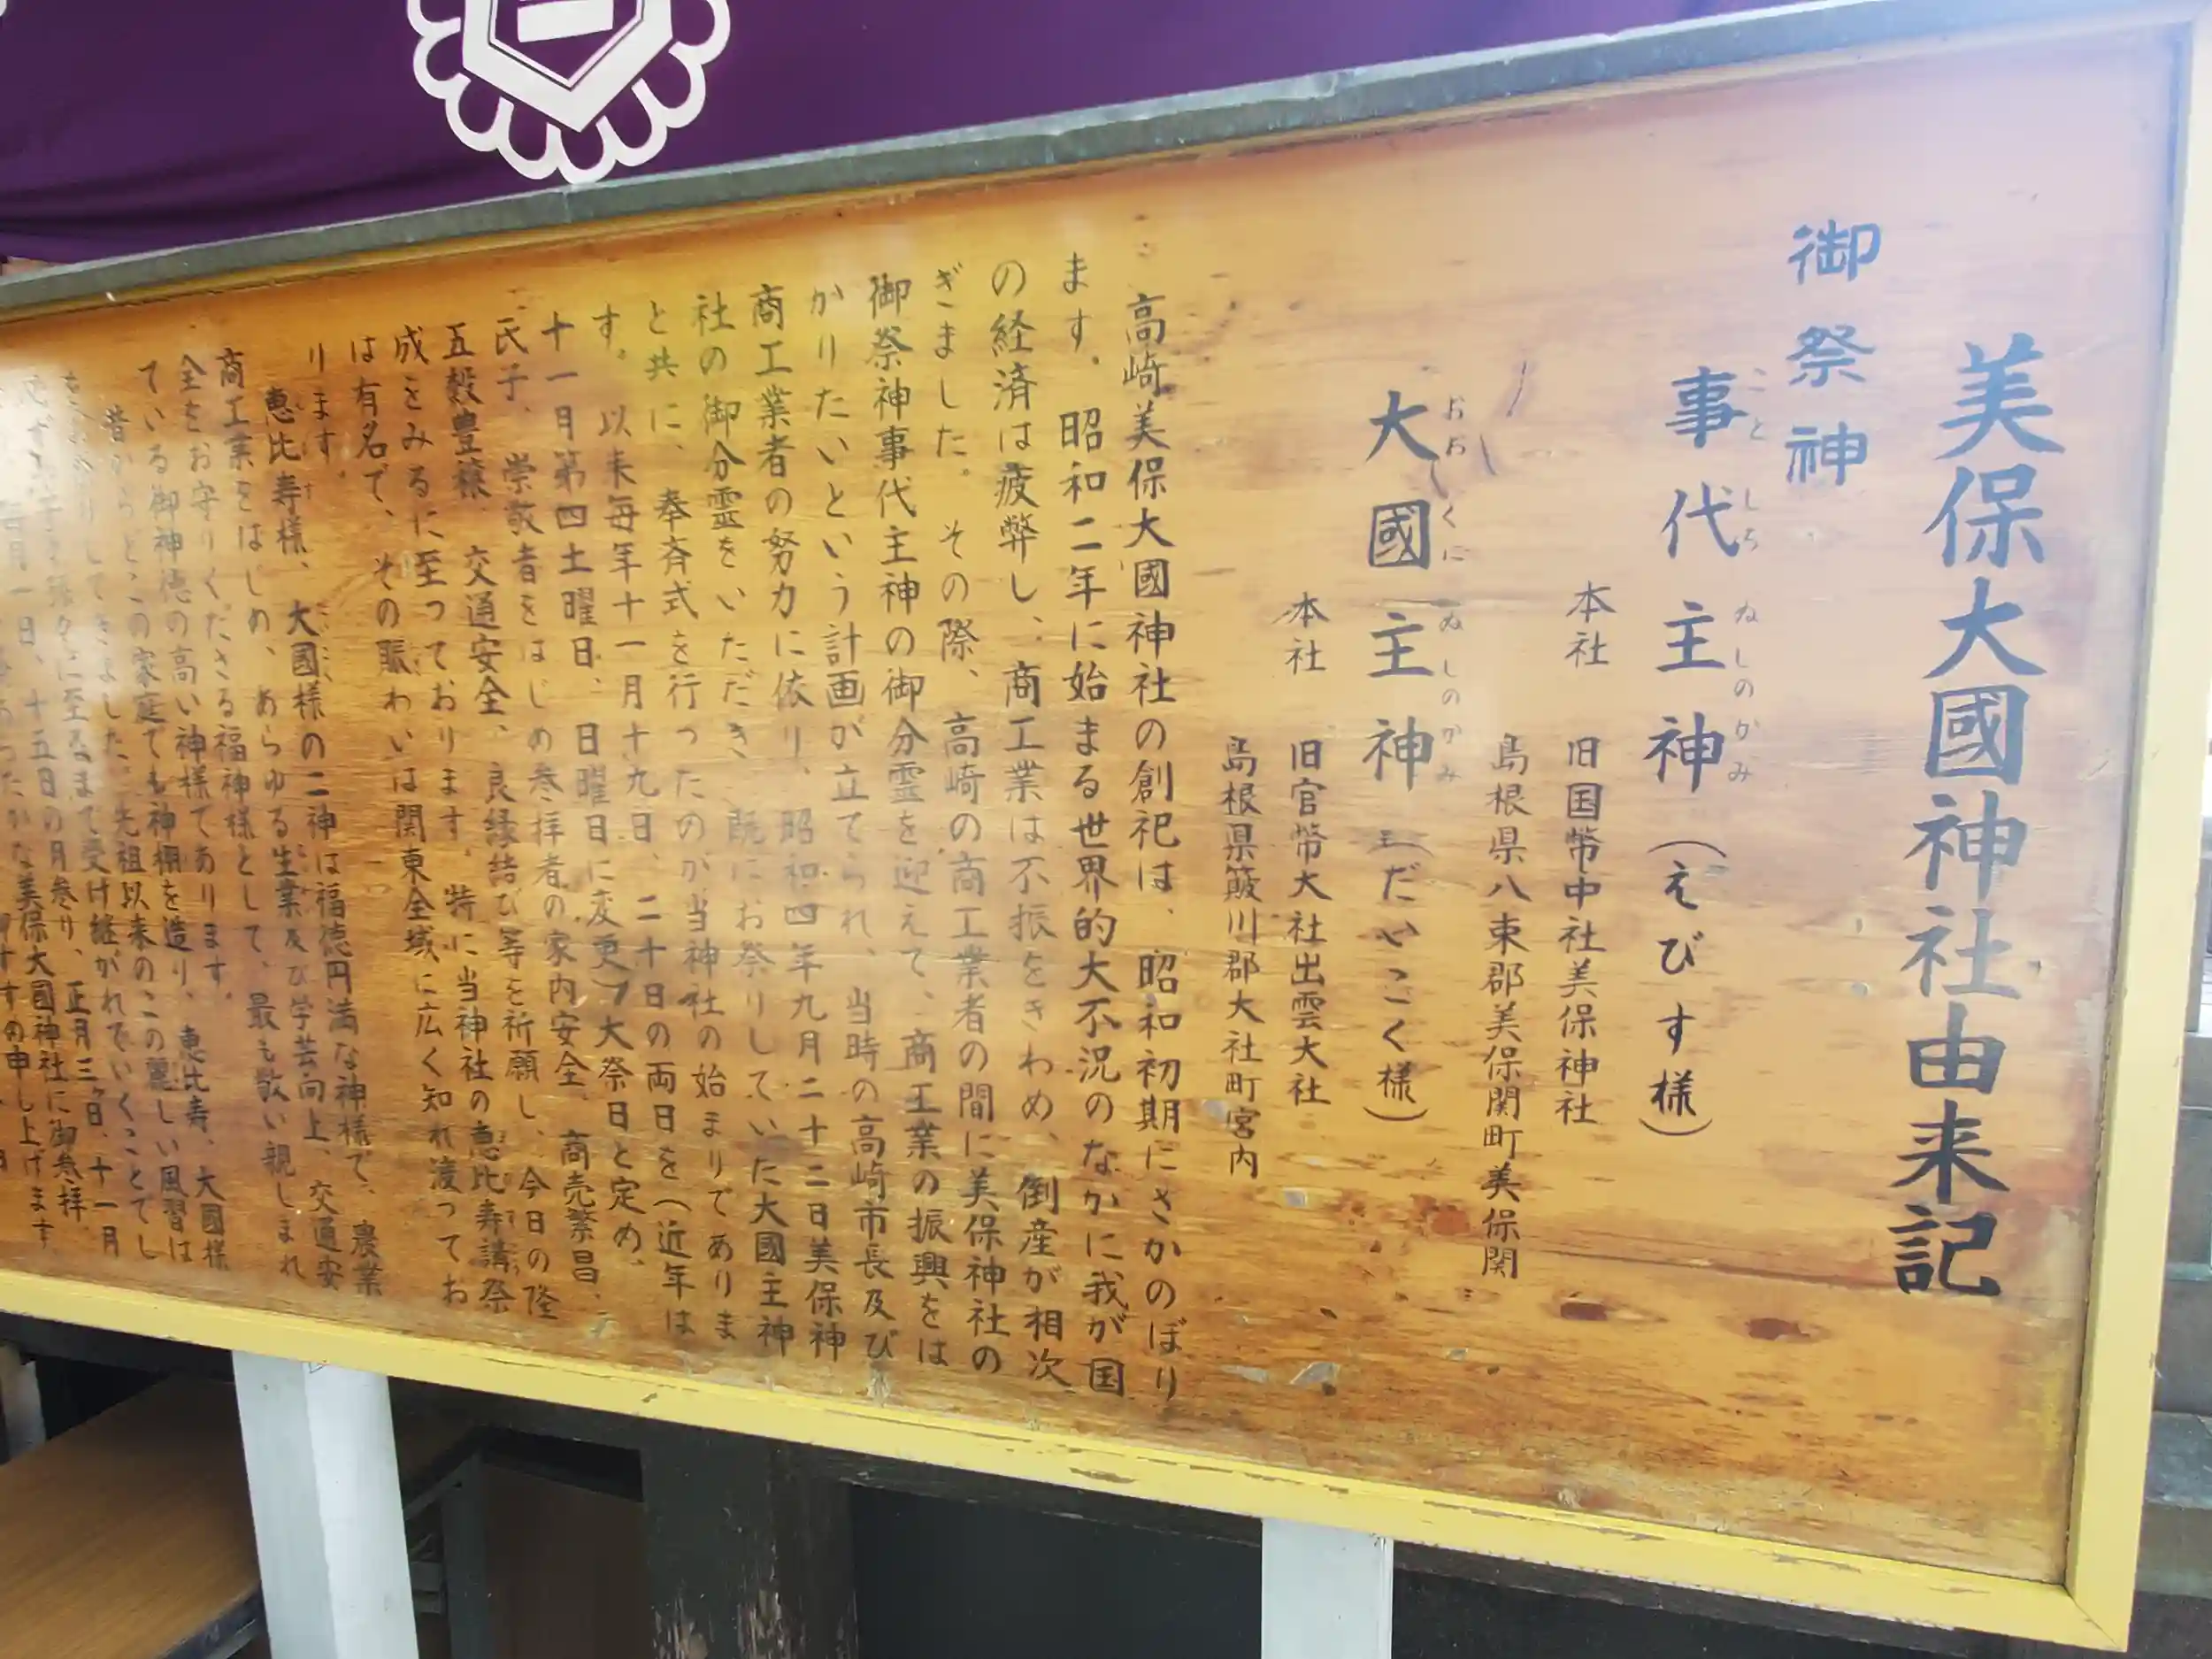 美保大國神社由来記
御祭神
事代主神（えびす様）
ことしろぬしのかみ
本社　旧国幣中社美保神社
島根県八束郡美保関町美保関
大國主神（だいこく様）
おおくにぬしのかみ
本社　旧官幣大社出雲大社
島根県簸川郡大社町宮内
高崎美保大國神社の創祀は、昭和初期にさかのぼり
ます。昭和二年に始まる世界的大不況のなかに我が国
の経済は疲弊し、商工業は不振をきわめ、倒産が相次
ぎました。その際、高崎の商工業者の間に美保神社の
御祭神事代主神の御分霊を迎えて、商工業の振興をは
かりたいという計画が立てられ、当時の高崎市長及び
商工業者の努力に依り、昭和四年九月二十二日美保神
社の御分霊をいただき　既にお祭りしていた大國主神
と共に、奉斉式を行ったのが当神社の始まりでありま
す。以来毎年十一月十九日、二十日の両日を（近年は
十一月第四土曜日、日曜日に変更）大祭日と定め、
氏子、崇敬者をはじめ参拝者の家内安全、商売繁昌、
五穀豊穣、交通安全、良縁結び等を祈願し、今日の隆
成をみるに至っております。特に当神社の恵比寿講祭
は有名で、その賑わいは関東全域に広く知れ渡ってお
ります。
恵比寿様、大國様の二神は福徳円満な神様で、農業
商工業をはじめ、あらゆる生業及び学芸向上、交通安
全をお守りくださる福神様として、最も敬い親しまれ
ている御神徳の高い神様であります。
昔からどこの家庭でも神棚を造り、恵比寿、大國様
先祖以来のこの麗しい風習は
に至るまで受け継がれていくことでし
月一日、十五日の月参り、正月三ヶ日、十一月
美保大國神社に御参拝
申し上げます